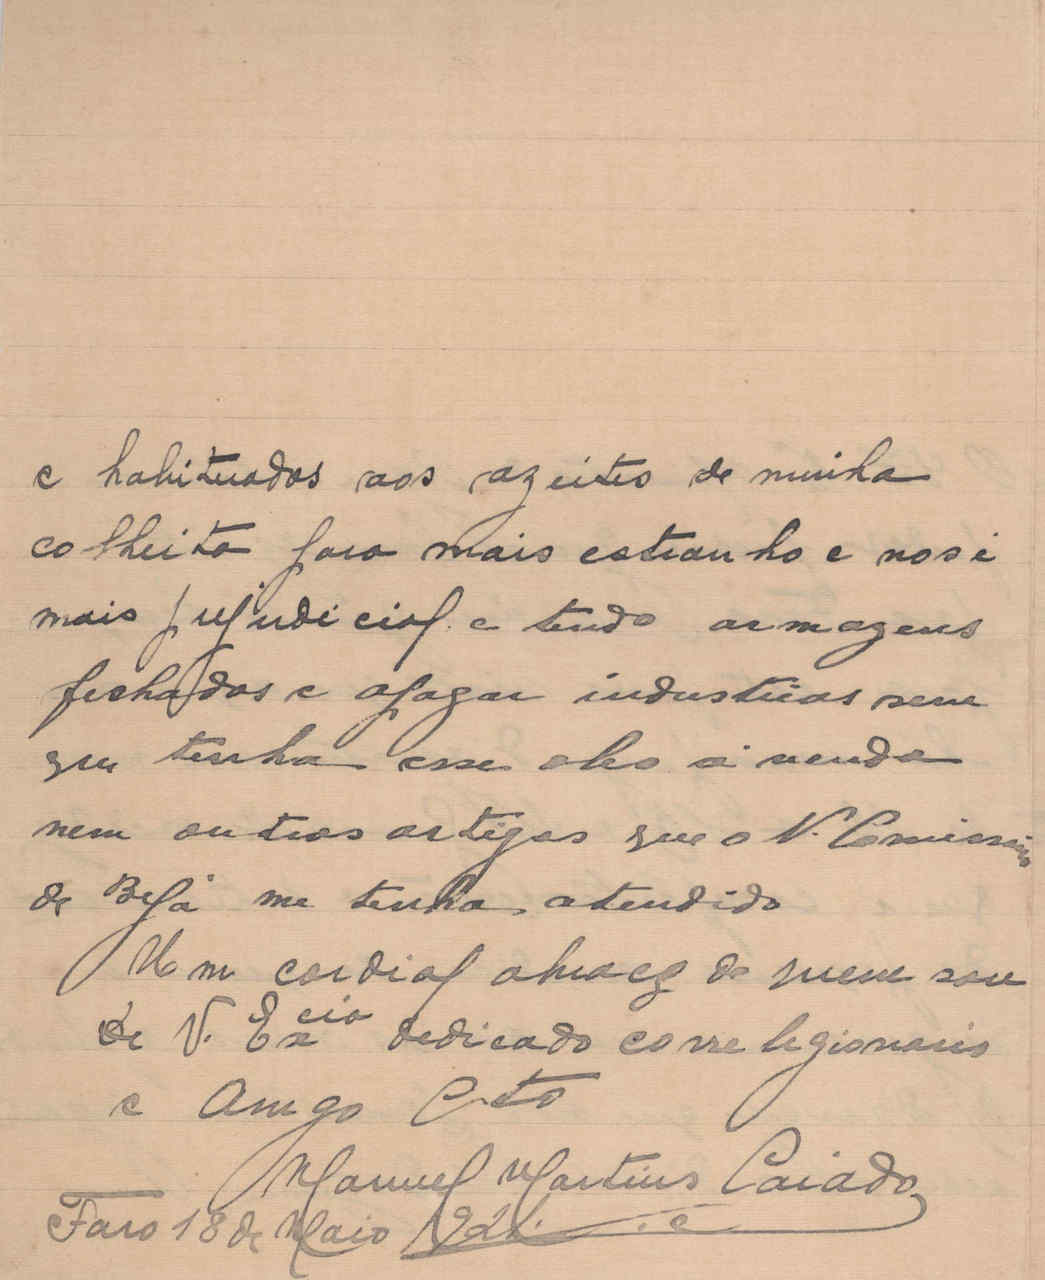 e habituados aos azeites de minha
colheita para mais estranho e nos é
mais prejudicial e tendo armazens
fechados e apagar industrias sem
que tenha esse oleo á venda
nem outros artigos que o N. Comissario
de Beja me tenha atendido
Um cordial abraço de quem sou
de V. Excia dedicado correlegionario
e Amigo Cto
Manuel Martins Caiado
Faro 18 de Maio